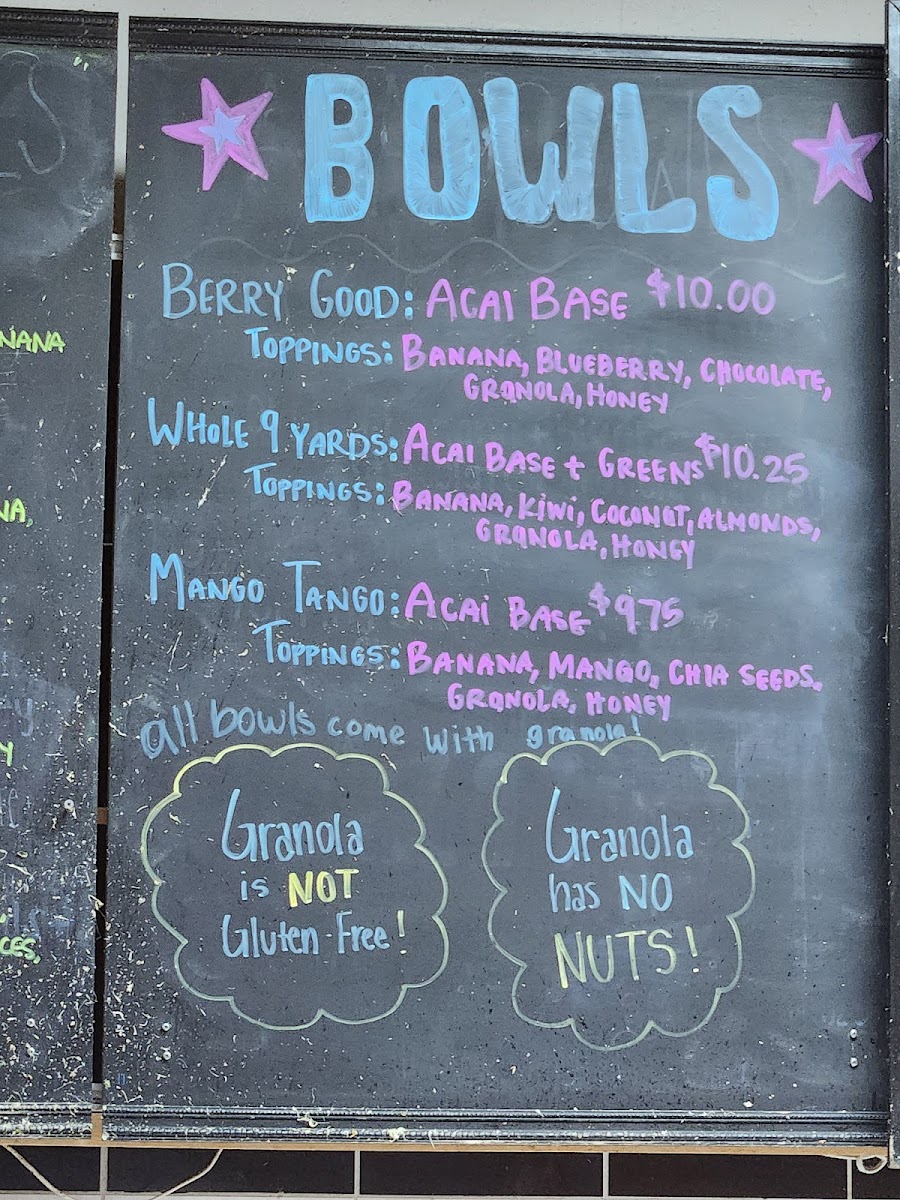 BOWLS
BERRY GOOD: ACAI BASE $10.00
TOPPINGS: BANANA, BLUEBERRY, CHOCOLATE,
GRANOLA, HONEY
WHOLE 9 YARDS: ACAI BASE + GREENS $10.25
TOPPINGS: BANANA, KIWI, COCONUT, ALMONDS,
GRANOLA, HONEY
MANGO TANGO: ACAI BASE $975
TOPPINGS: BANANA, MANGO, CHIA SEEDS,
GRANOLA, HONEY
all bowls come with granola!
Granola
is NOT
Gluten-Free!
Granola
has NO
NUTS!
NANA
NA,
Y
CES,